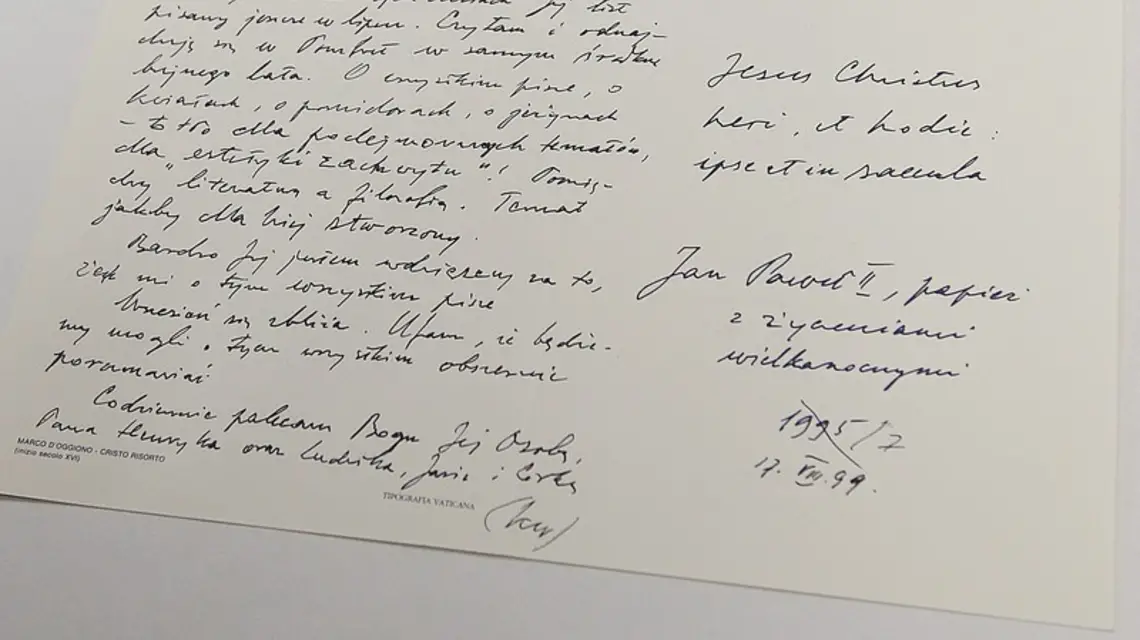 Jej list
pisany jeszcze w lipcu. Czytam i odnaj-
duję się w Pomfret w samym środku
bujnego lata. O wszystkim pisze, o
kwiatach, o pomidorach, o jeżynach
- to tło dla podejmowanych tematów,
dla "estetyki zachwytu"! Pomię-
dzy literaturą a filozofią. Temat
jakby dla Niej stworzony.
Bardzo Jej jestem wdzięczny za to,
że mi o tym wszystkim pisze
Wrzesień się zbliża. Ufam, że będzie-
my mogli o tym wszystkim obszernie
porozmawiać
Codziennie polecam Bogu Jej Osobę,
Pana Henryka oraz Ludwika, Jasia i
(kw)
MARCO D'OGGIONO - CRISTO RISORTO
(inizio secolo XVI)
TIPOGRAFIA VATICANA
Jesus Christus
heri, et hodie:
ipse et in saecula
Jan Paweł II, papież
z życzeniami
wielkanocnymi
1995/7
17. VIII. 99.